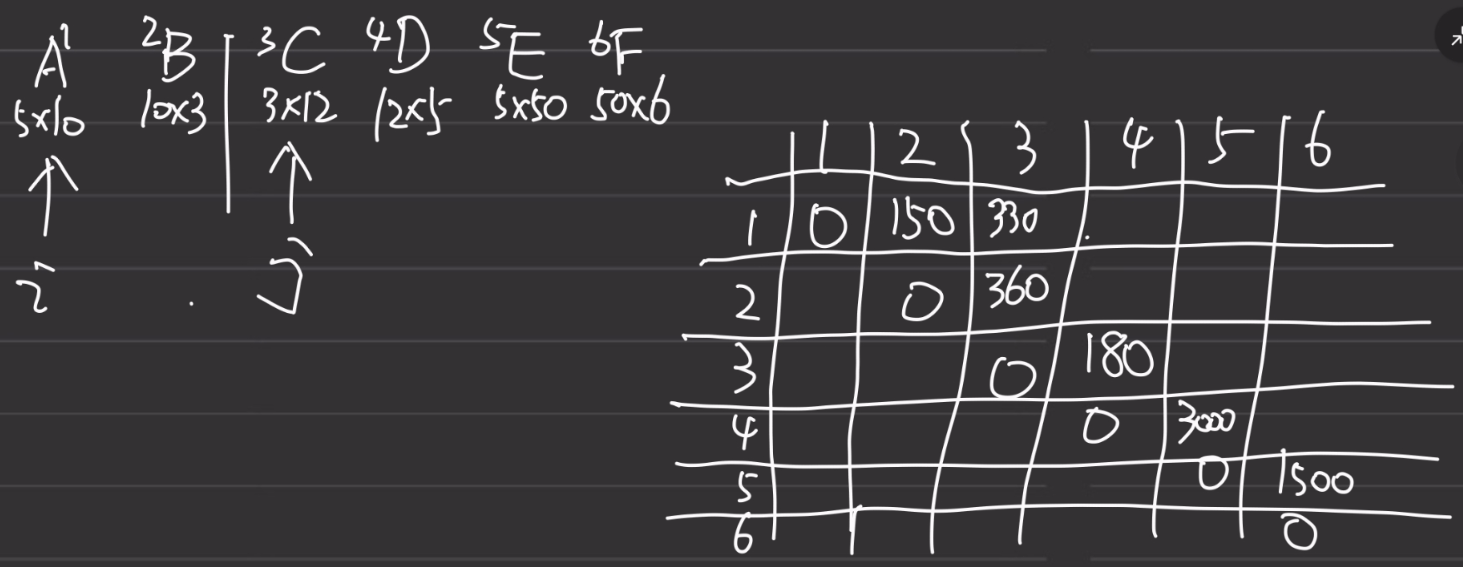 A¹ ²B ³C ⁴D ⁵E ⁶F
5x10 10x3 3x12 12x5 5x50 50x6
i j
1 2 3 4 5 6
1 0 150 330
2 0 360
3 0 180
4 0 3000
5 0 1500
6 0